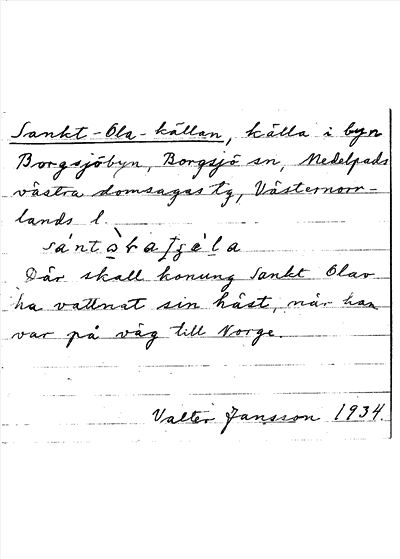 Sankt-Ola-källan, källa i byn
Borgsjöbyn, Borgsjö sn, Medelpads
västra domsagas tg, Västernorr-
lands l.
Där skall konung Sankt Olav
ha vattnat sin häst, när han
var på väg till Norge.
Valter Jansson 1934.